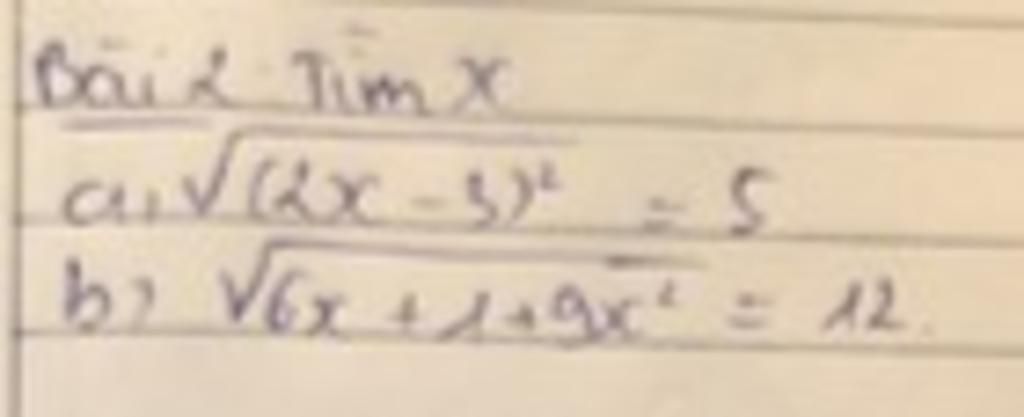 Bài 2 Tìm x
a, √(2x - 3)² = 5
b, √6x + 1 + 9x² = 12.